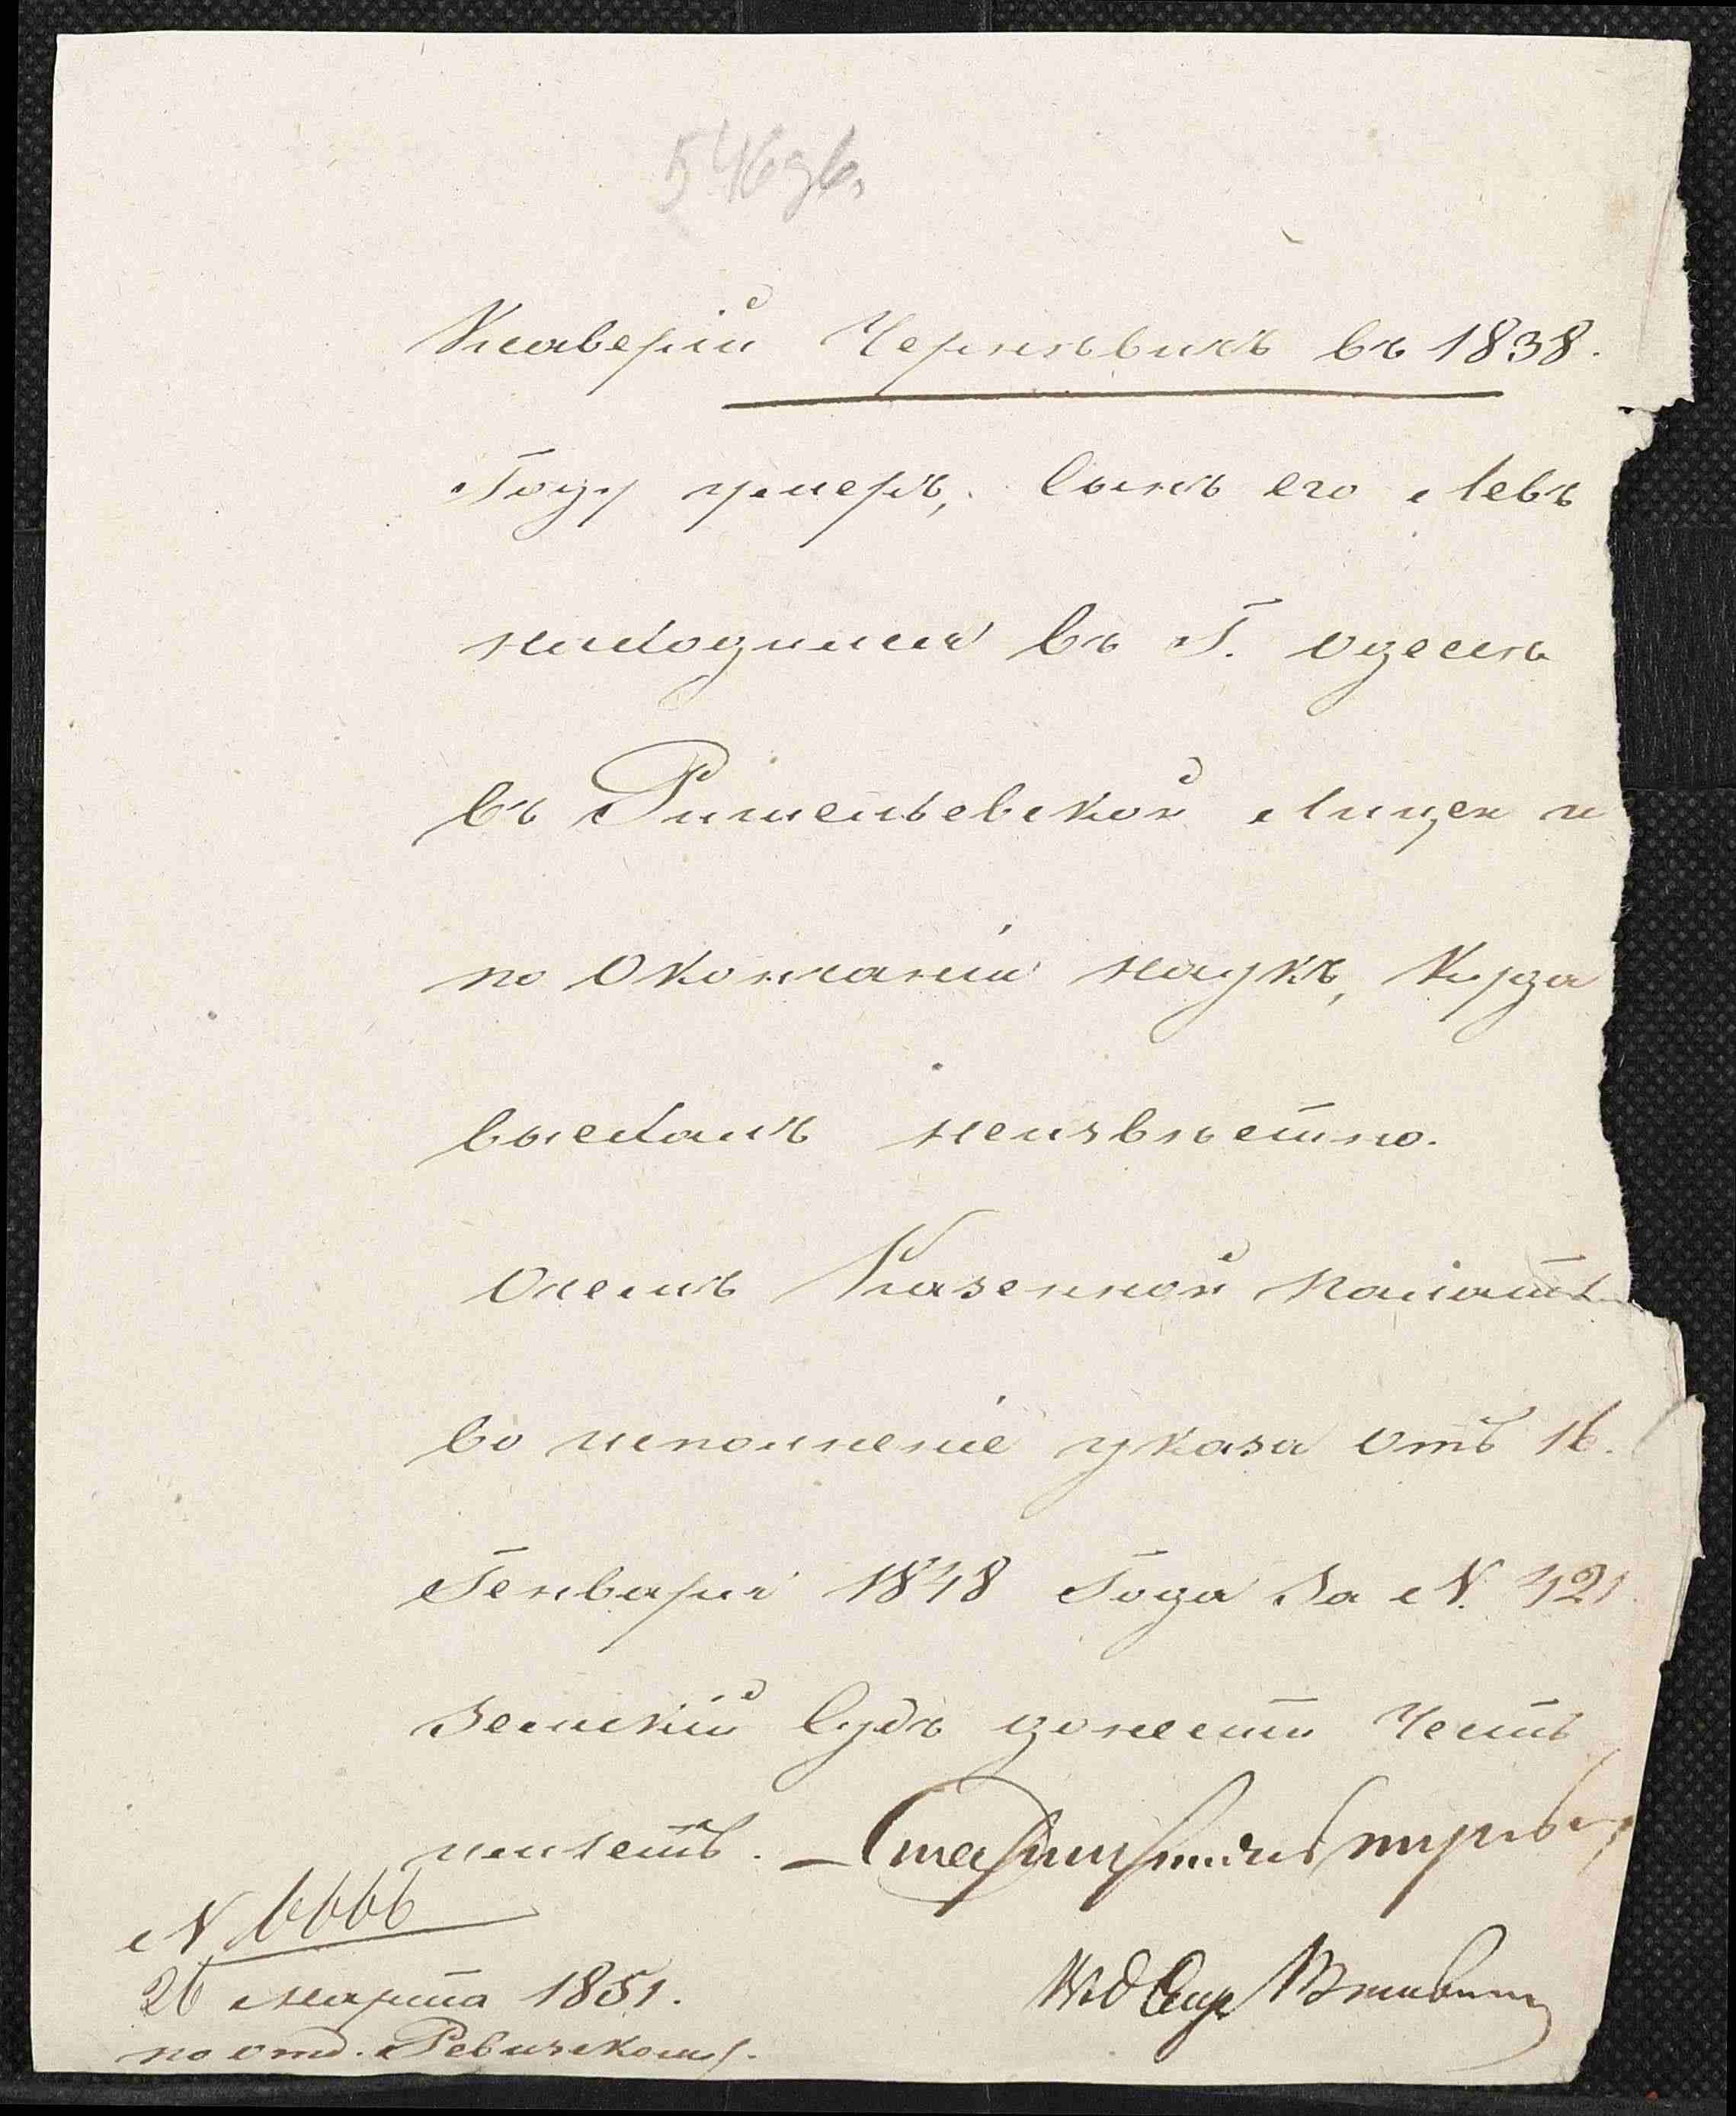 Ксаверій Чернѣвичь въ 1838.
Году умеръ, Сынъ его Левъ
находился въ Г. Одессѣ
въ Ришельевской Лицеи и
по Окончаніи наукъ, Куда
выехалъ неизвѣстно.
О чемъ Казенной Палатѣ
во исполненіе указа отъ 16.
Генваря 1848 Года За N. 421
Земскій Судъ донести Честь
имѣетъ.
N 6666
26 Марта 1851.
по отд. Ревизскому.